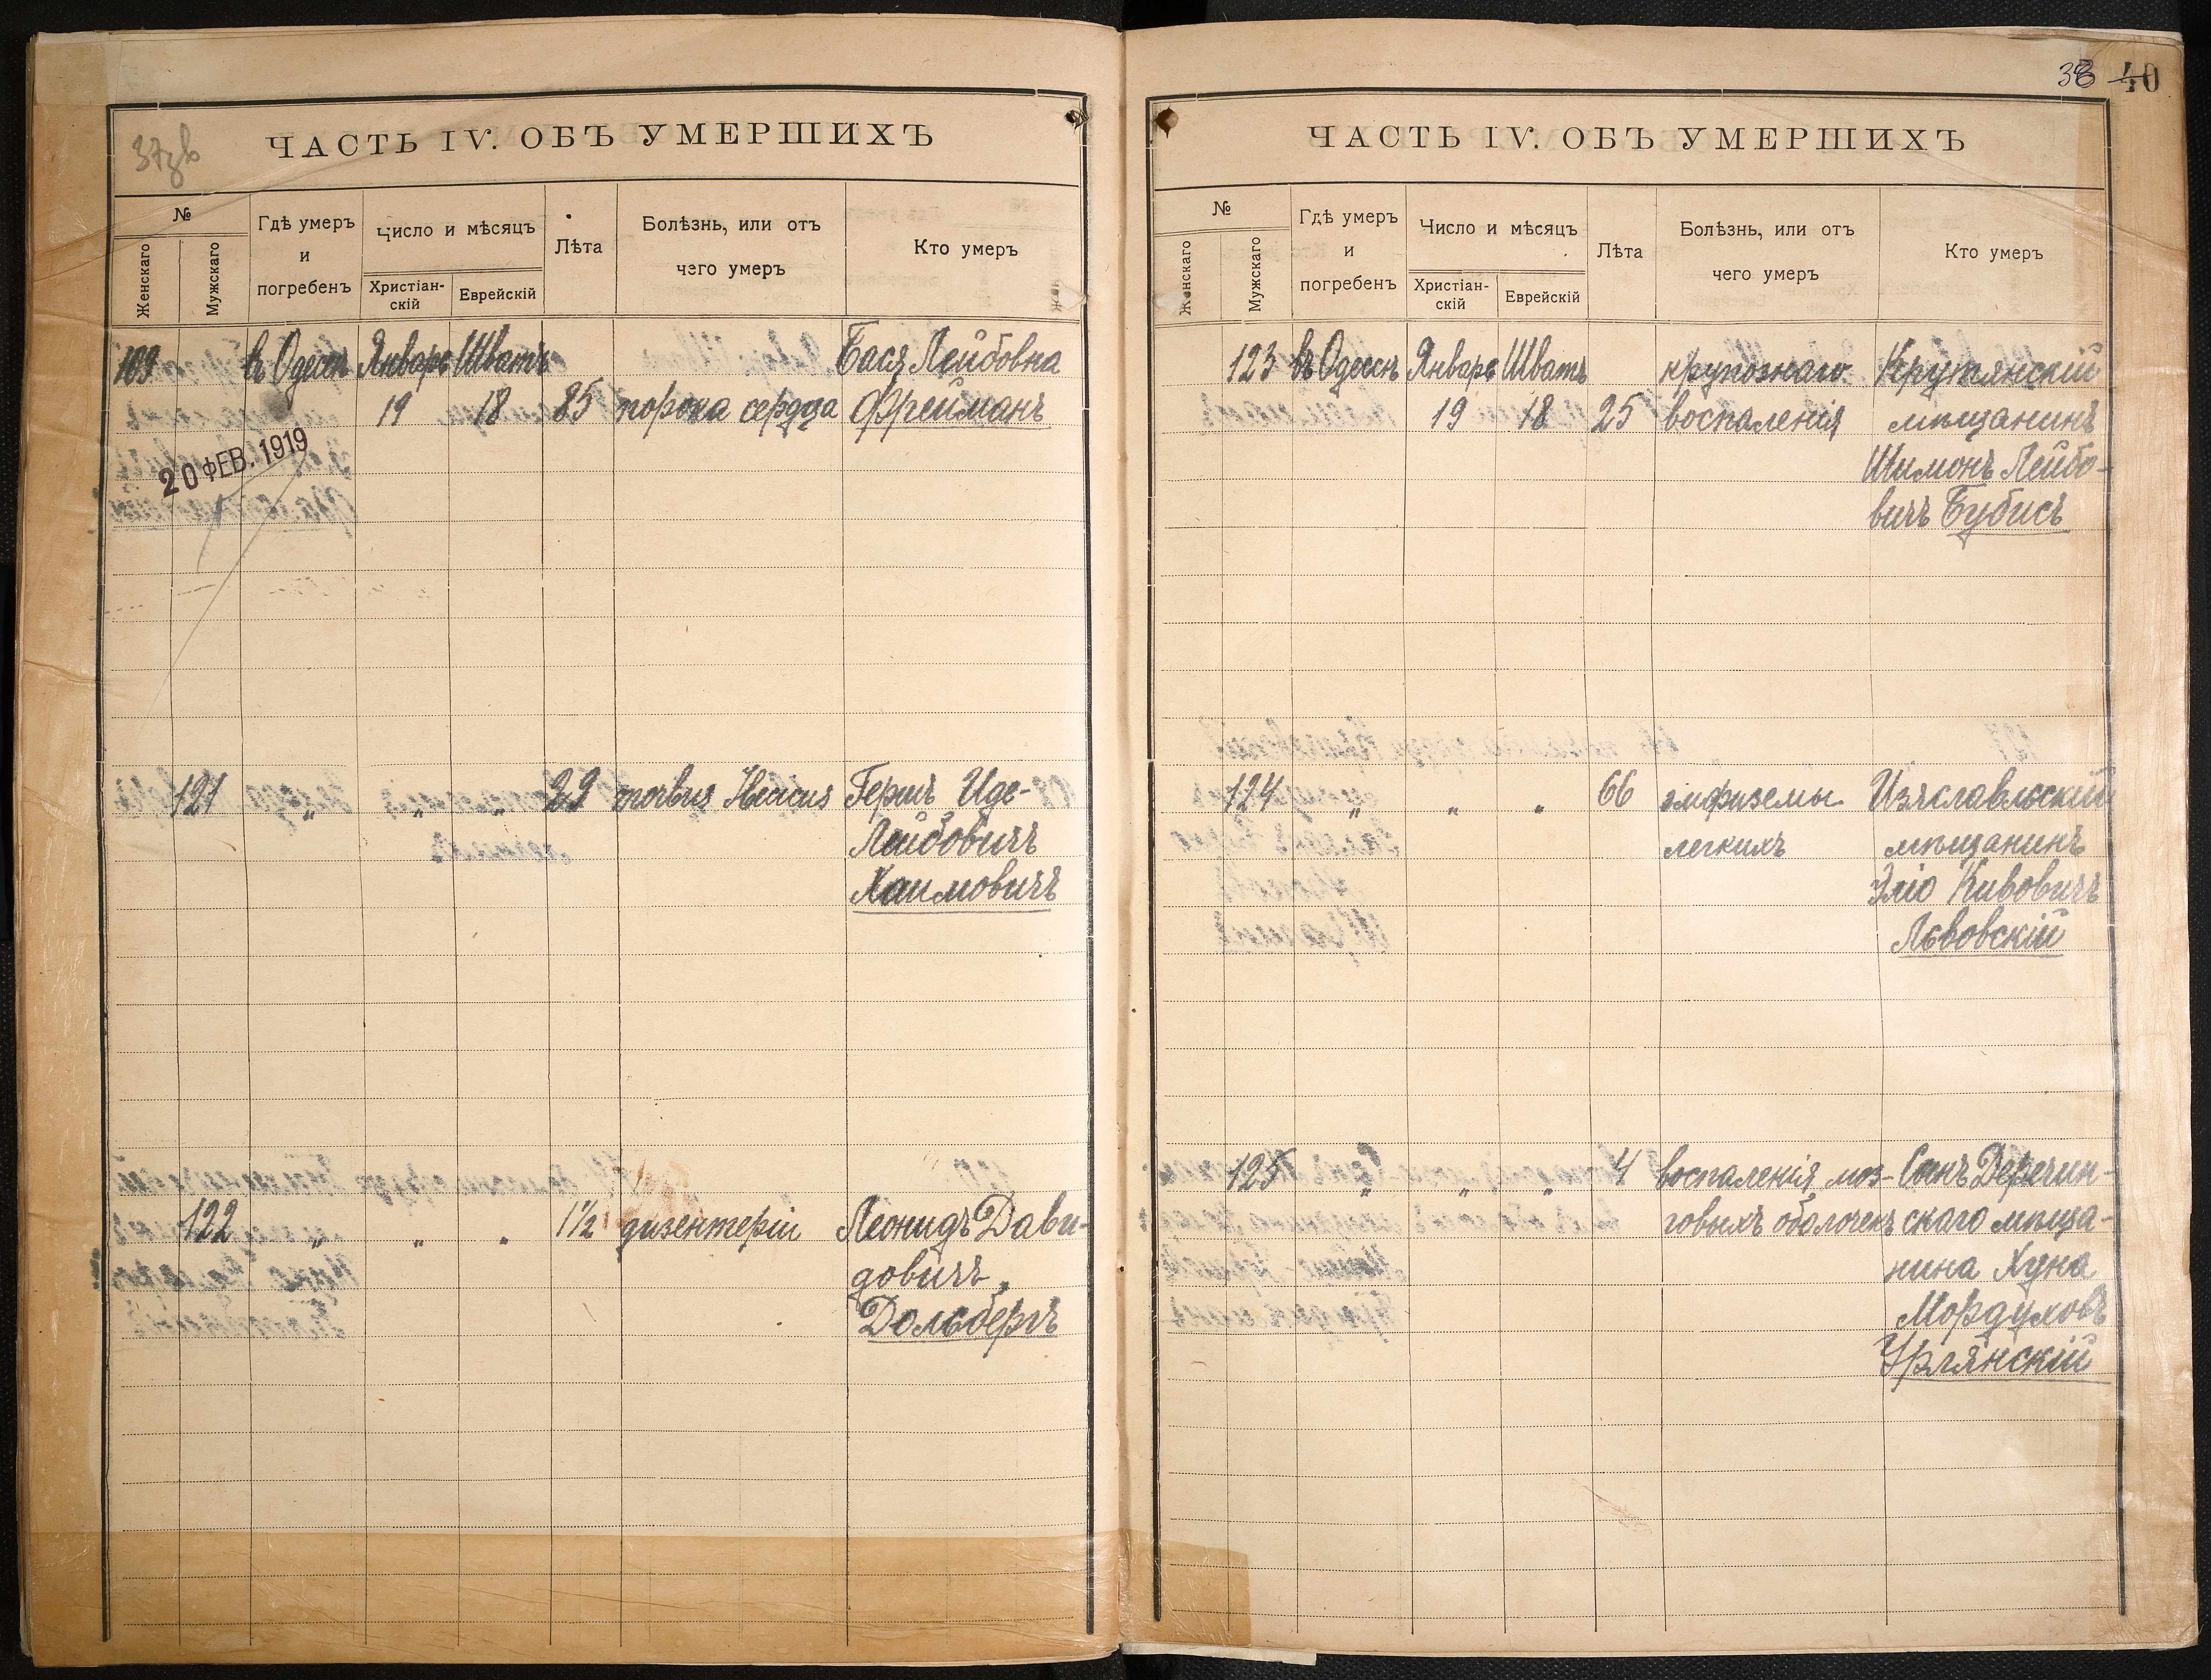 37зв
ЧАСТЬ IV. ОБЪ УМЕРШИХЪ
№
Женскаго
Мужскаго
Гдѣ умеръ
и
погребенъ
Число и мѣсяцъ
Христіан-
скій
Еврейскій
Лѣта
Болѣзнь, или отъ
чего умеръ
Кто умеръ
109 въ Одессѣ Январь Шватъ Бася Лейбовна
19 18 85 порока сердца Фрейманъ
20 ФЕВ. 1919
121 " " " 29 morbus Герш Иде-
Лейбовичъ
Хаимовичъ
122 " " " 1½ дизентеріи Леонидъ Дави-
довичъ
Дольбергъ
38 40
ЧАСТЬ IV. ОБЪ УМЕРШИХЪ
№
Женскаго
Мужскаго
Гдѣ умеръ
и
погребенъ
Число и мѣсяцъ
Христіан-
скій
Еврейскій
Лѣта
Болѣзнь, или отъ
чего умеръ
Кто умеръ
123 въ Одессѣ Январь Шватъ крупознаго Крутянскій
19 18 25 воспаленія мѣщанинъ
Шимонъ Лейбо-
вичъ Бубисъ
124 " " " 66 эмфиземы Изяславльскій
легкихъ мѣщанинъ
Эліо Кивовичъ
Львовскій
125 " " " 4 воспаленія моз- Сынъ Деречин-
говыхъ оболочекъ скаго мѣща-
нина Хуна
Мордуховъ
Урлянскій